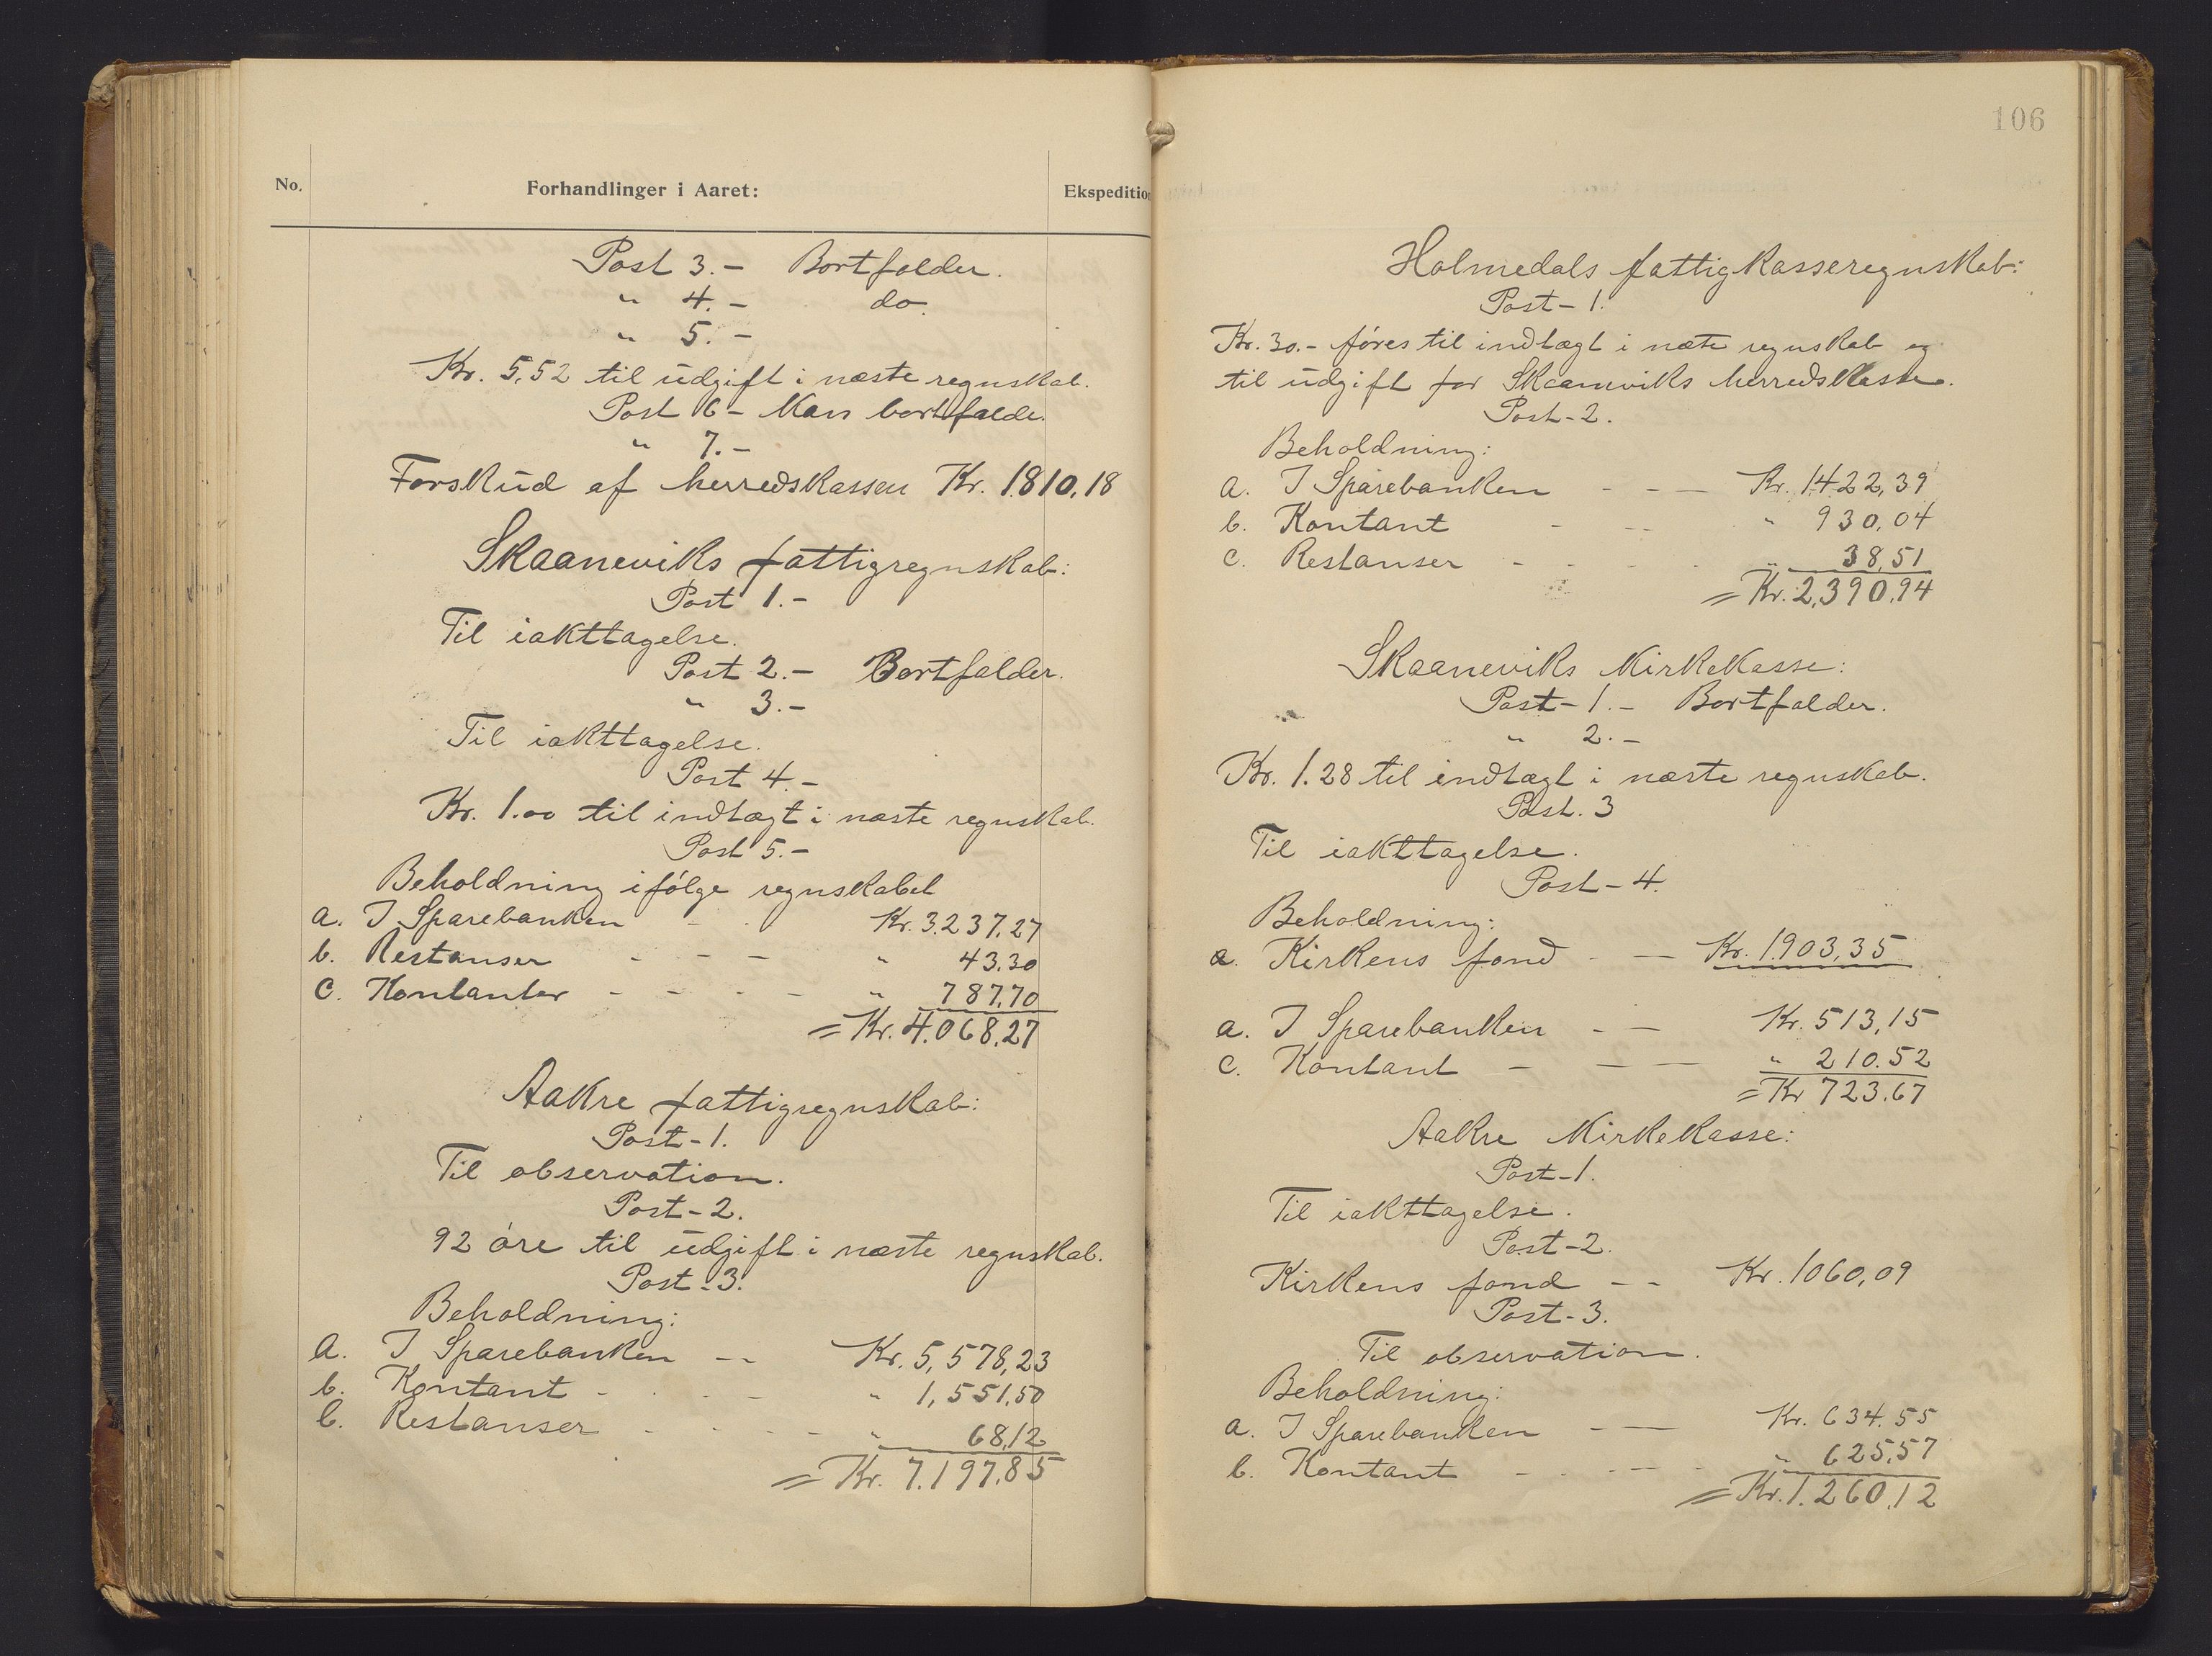 No.
Forhandlinger i Aaret:
Ekspedition
Post 3.- Bortfalder.
" 4.- do.
" 5.-
Kr. 5,52 til udgift i næste regnskab.
Post 6 - Kan bortfalde.
" 7.-
Forskud af herredskassen Kr. 1810,18
Skaaneviks fattigregnskab:
Post 1.-
Til iakttagelse.
Post 2.- Bortfalder.
" 3.-
Til iakttagelse.
Post 4.-
Kr. 1.00 til indtægt i næste regnskab.
Post 5.-
Beholdning ifølge regnskabet
a. I Sparebanken - - Kr. 3.237,27
b. Restanser - - - " 43,30
c. Kontanter - - - - " 787,70
= Kr. 4.068,27
Aakre fattigregnskab:
Post-1.
Til observation.
Post-2.
92 øre til udgift i næste regnskab.
Post-3.
Beholdning:
a. I Sparebanken -- Kr. 5,578,23
b. Kontant - - - - " 1,551,50
c. Restanser - - - - " 68,12
= Kr. 7.197,85
106
Holmedals fattigkasseregnskab:
Post-1.
Kr. 30.- føres til indtægt i næte regnskab og
til udgift for Skaaneviks herredskasse.
Post-2.
Beholdning:
a. I Sparebanken - - — Kr. 1422,39
b. Kontant - -- " 930,04
c. Restanser - - - - " 38,51
= Kr. 2,390,94
Skaaneviks Kirkekasse:
Post-1.- Bortfalder.
" 2.-
Kr. 1.28 til indtægt i næste regnskab.
Post. 3
Til iakttagelse.
Post-4.
Beholdning:
a. Kirkens fond - — Kr. 1903,35
a. I Sparebanken - — Kr. 513,15
c. Kontant - — — " 210.52
= Kr 723.67
Aakre Kirkekasse:
Post-1.
Til iakttagelse.
Post-2.
Kirkens fond -- Kr. 1060,09
Post-3.
Til observation.
Beholdning:
a. I Sparebanken - — Kr. 634.55
b. Kontant - - -- - " 625,57
= Kr. 1.260,12